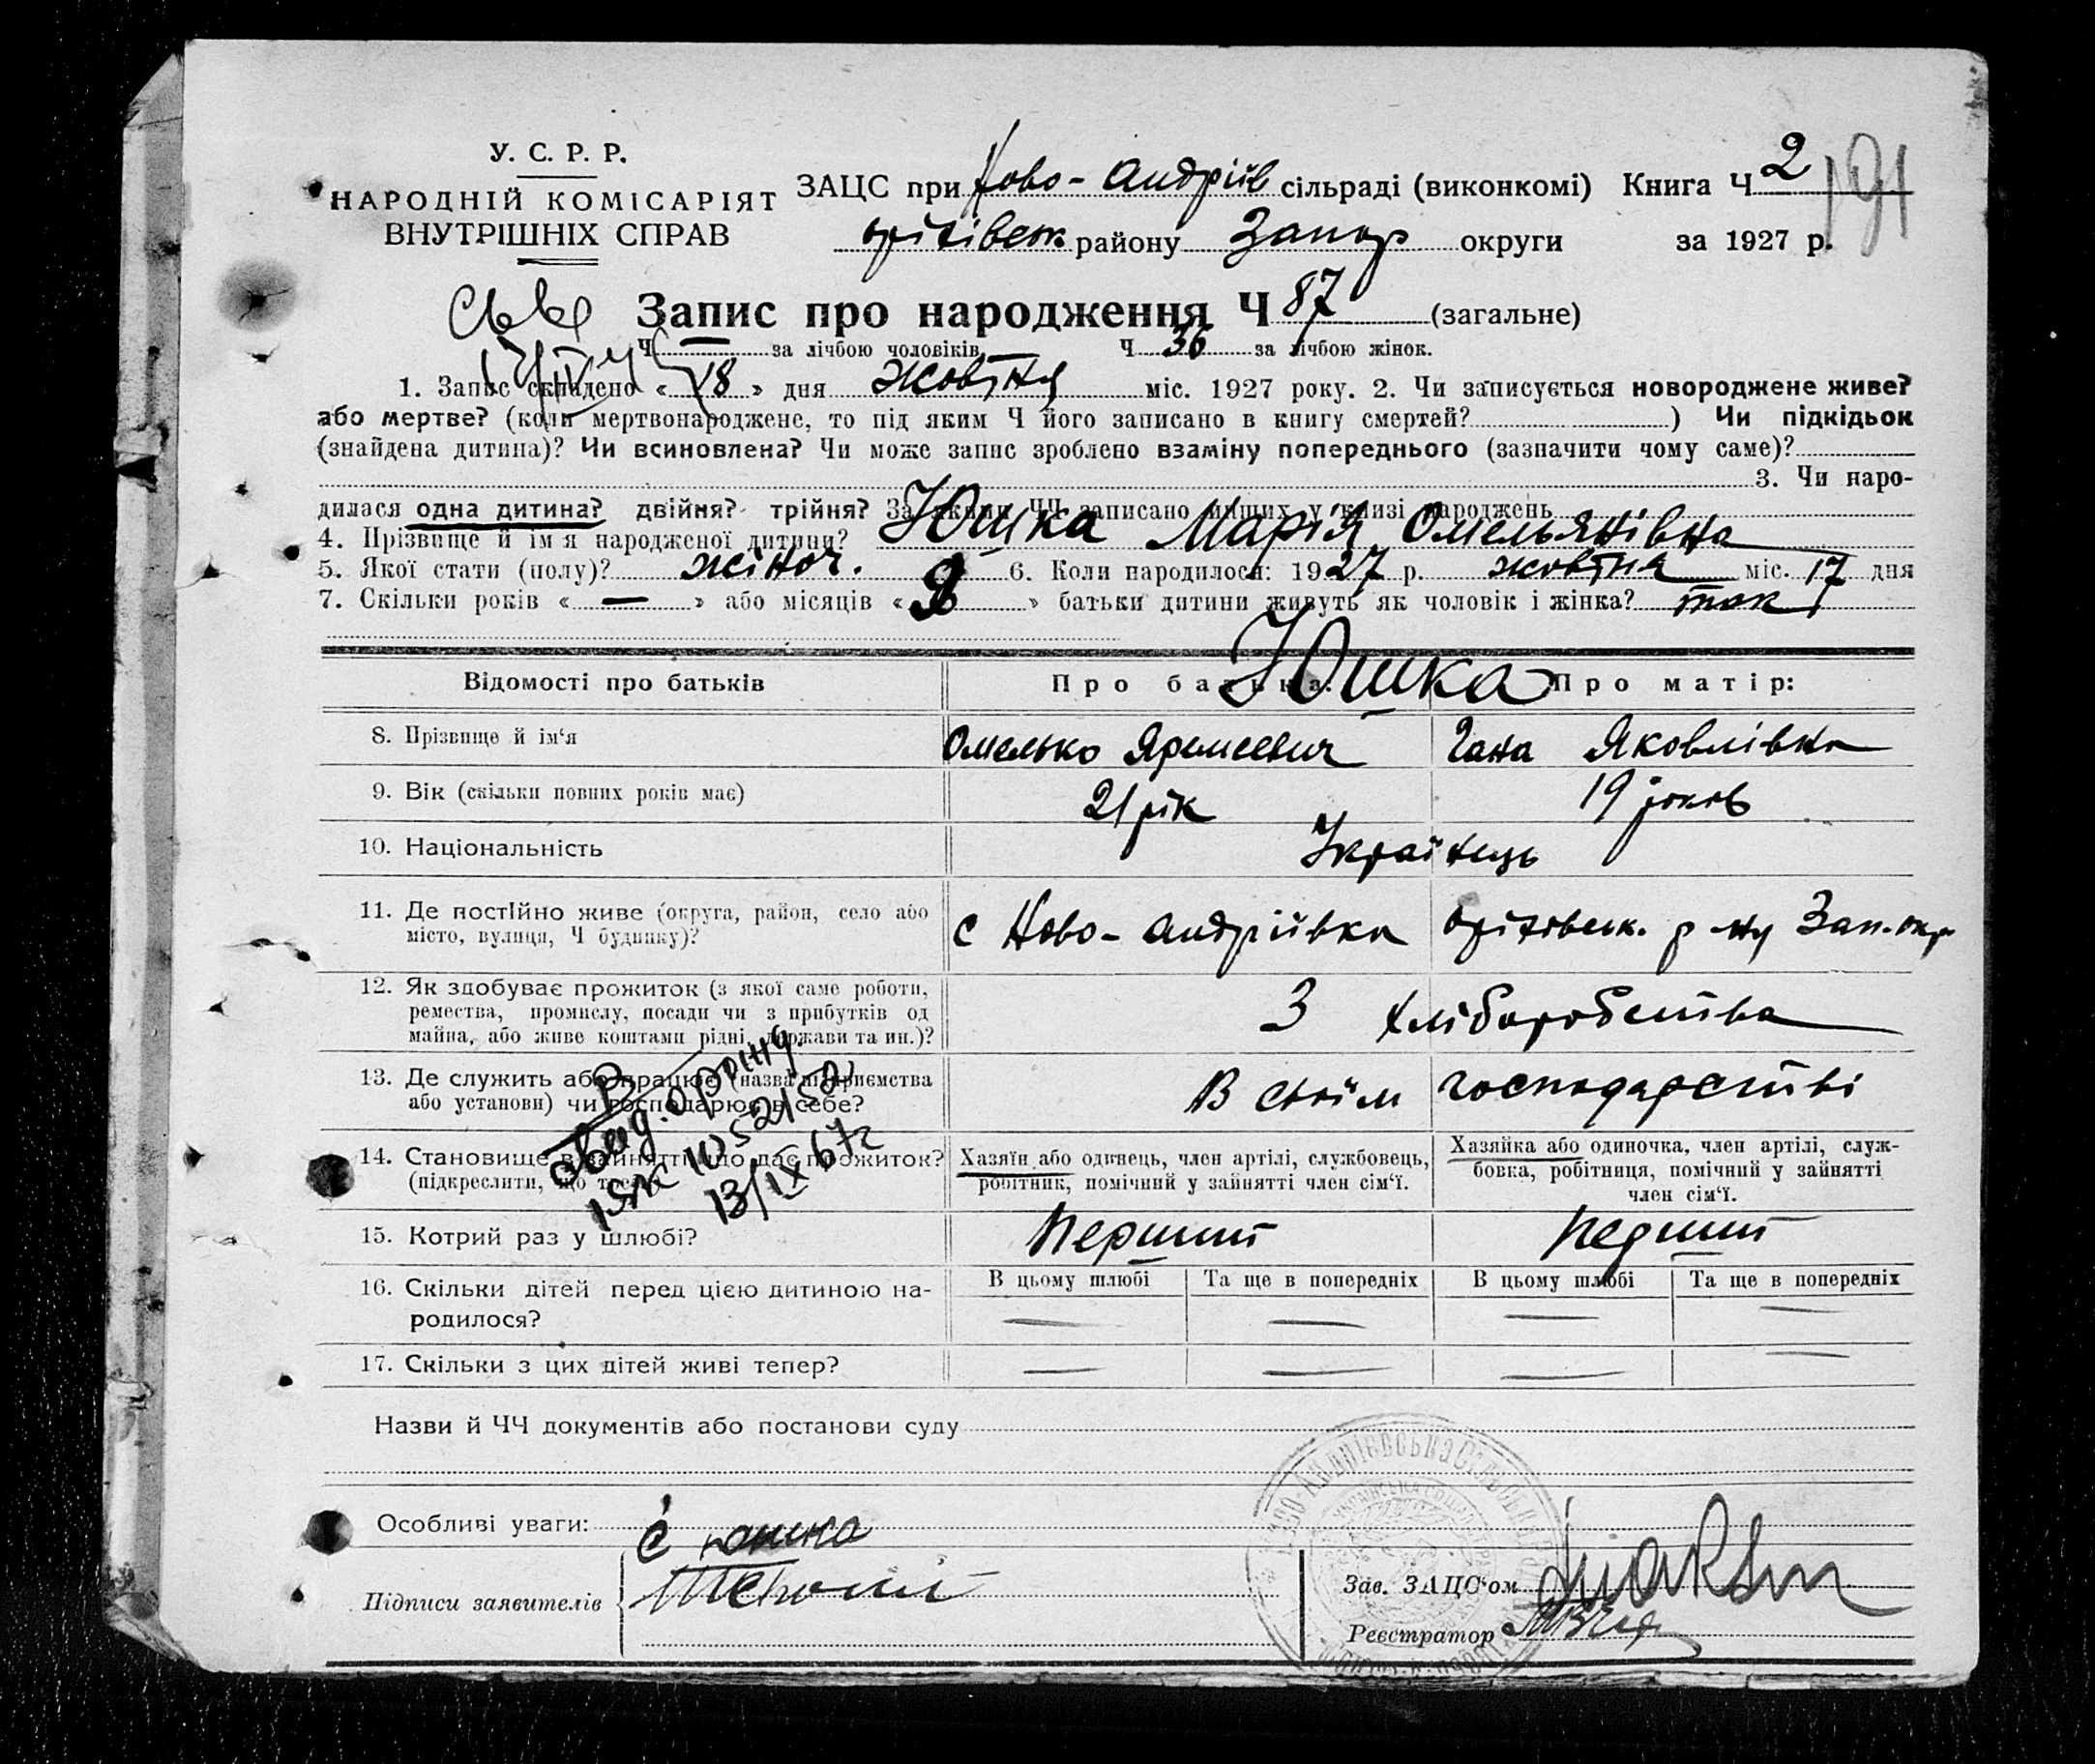 У. С. Р. Р.
НАРОДНІЙ КОМІСАРІЯТ
ВНУТРІШНІХ СПРАВ
ЗАЦС при Ново-Андріїв сільраді (виконкомі) Книга Ч 2
191
оріхівськ району Запор округи за 1927 р.
Запис про народження Ч 87 (загальне)
Ч — за лічбою чоловіків, Ч 36 за лічбою жінок.
1. Запис складено « 18 » дня жовтня міс. 1927 року. 2. Чи записується новороджене живе?
або мертве? (коли мертвонароджене, то під яким Ч його записано в книгу смертей? ) Чи підкідьок
(знайдена дитина)? Чи всиновлена? Чи може запис зроблено взаміну попереднього (зазначити чому саме)?
3. Чи наро-
дилася одна дитина? двійня? трійня? За якими ЧЧ записано инших у книзі народжень
4. Прізвище й ім'я народженої дитини? Юшка Марія Омельянівна
5. Якої стати (полу)? жіноч. 6. Коли народилося: 1927 р. жовтня міс. 17 дня
7. Скільки років « — » або місяців « » батьки дитини живуть як чоловік і жінка? так
Відомості про батьків Про батька: Юшка Про матір:
8. Прізвище й ім'я Омелько Яремеевич Гана Яковлівна
9. Вік (скільки повних років має) 21 рік 19 років
10. Національність Українець
11. Де постійно живе (округа, район, село або
місто, вулиця, Ч будинку)? с Ново-Андріївка Оріхівськ. р-ну Зап. окр
12. Як здобуває прожиток (з якої саме роботи,
ремества, промислу, посади чи з прибутків од
майна, або живе коштами рідні, держави та ин.)? З хліборобства
13. Де служить або працює (назва підприємства
або установи) чи господарює в себе? В своїм господарстві
14. Становище в зайнятті, що дає прожиток?
(підкреслити, що треба)
Хазяїн або одинець, член артілі, службовець,
робітник, помічний у зайнятті член сім'ї.
Хазяйка або одиночка, член артілі, служ-
бовка, робітниця, помічний у зайнятті
член сім'ї.
13/IX 67г
15. Котрий раз у шлюбі? Перший Перший
16. Скільки дітей перед цією дитиною на-
родилося?
В цьому шлюбі Та ще в попередніх В цьому шлюбі Та ще в попередніх
— — — —
17. Скільки з цих дітей живі тепер? — — — —
Назви й ЧЧ документів або постанови суду
Особливі уваги:
Юшка
Підписи заявителів
Зав. ЗАЦС'ом
Реєстратор